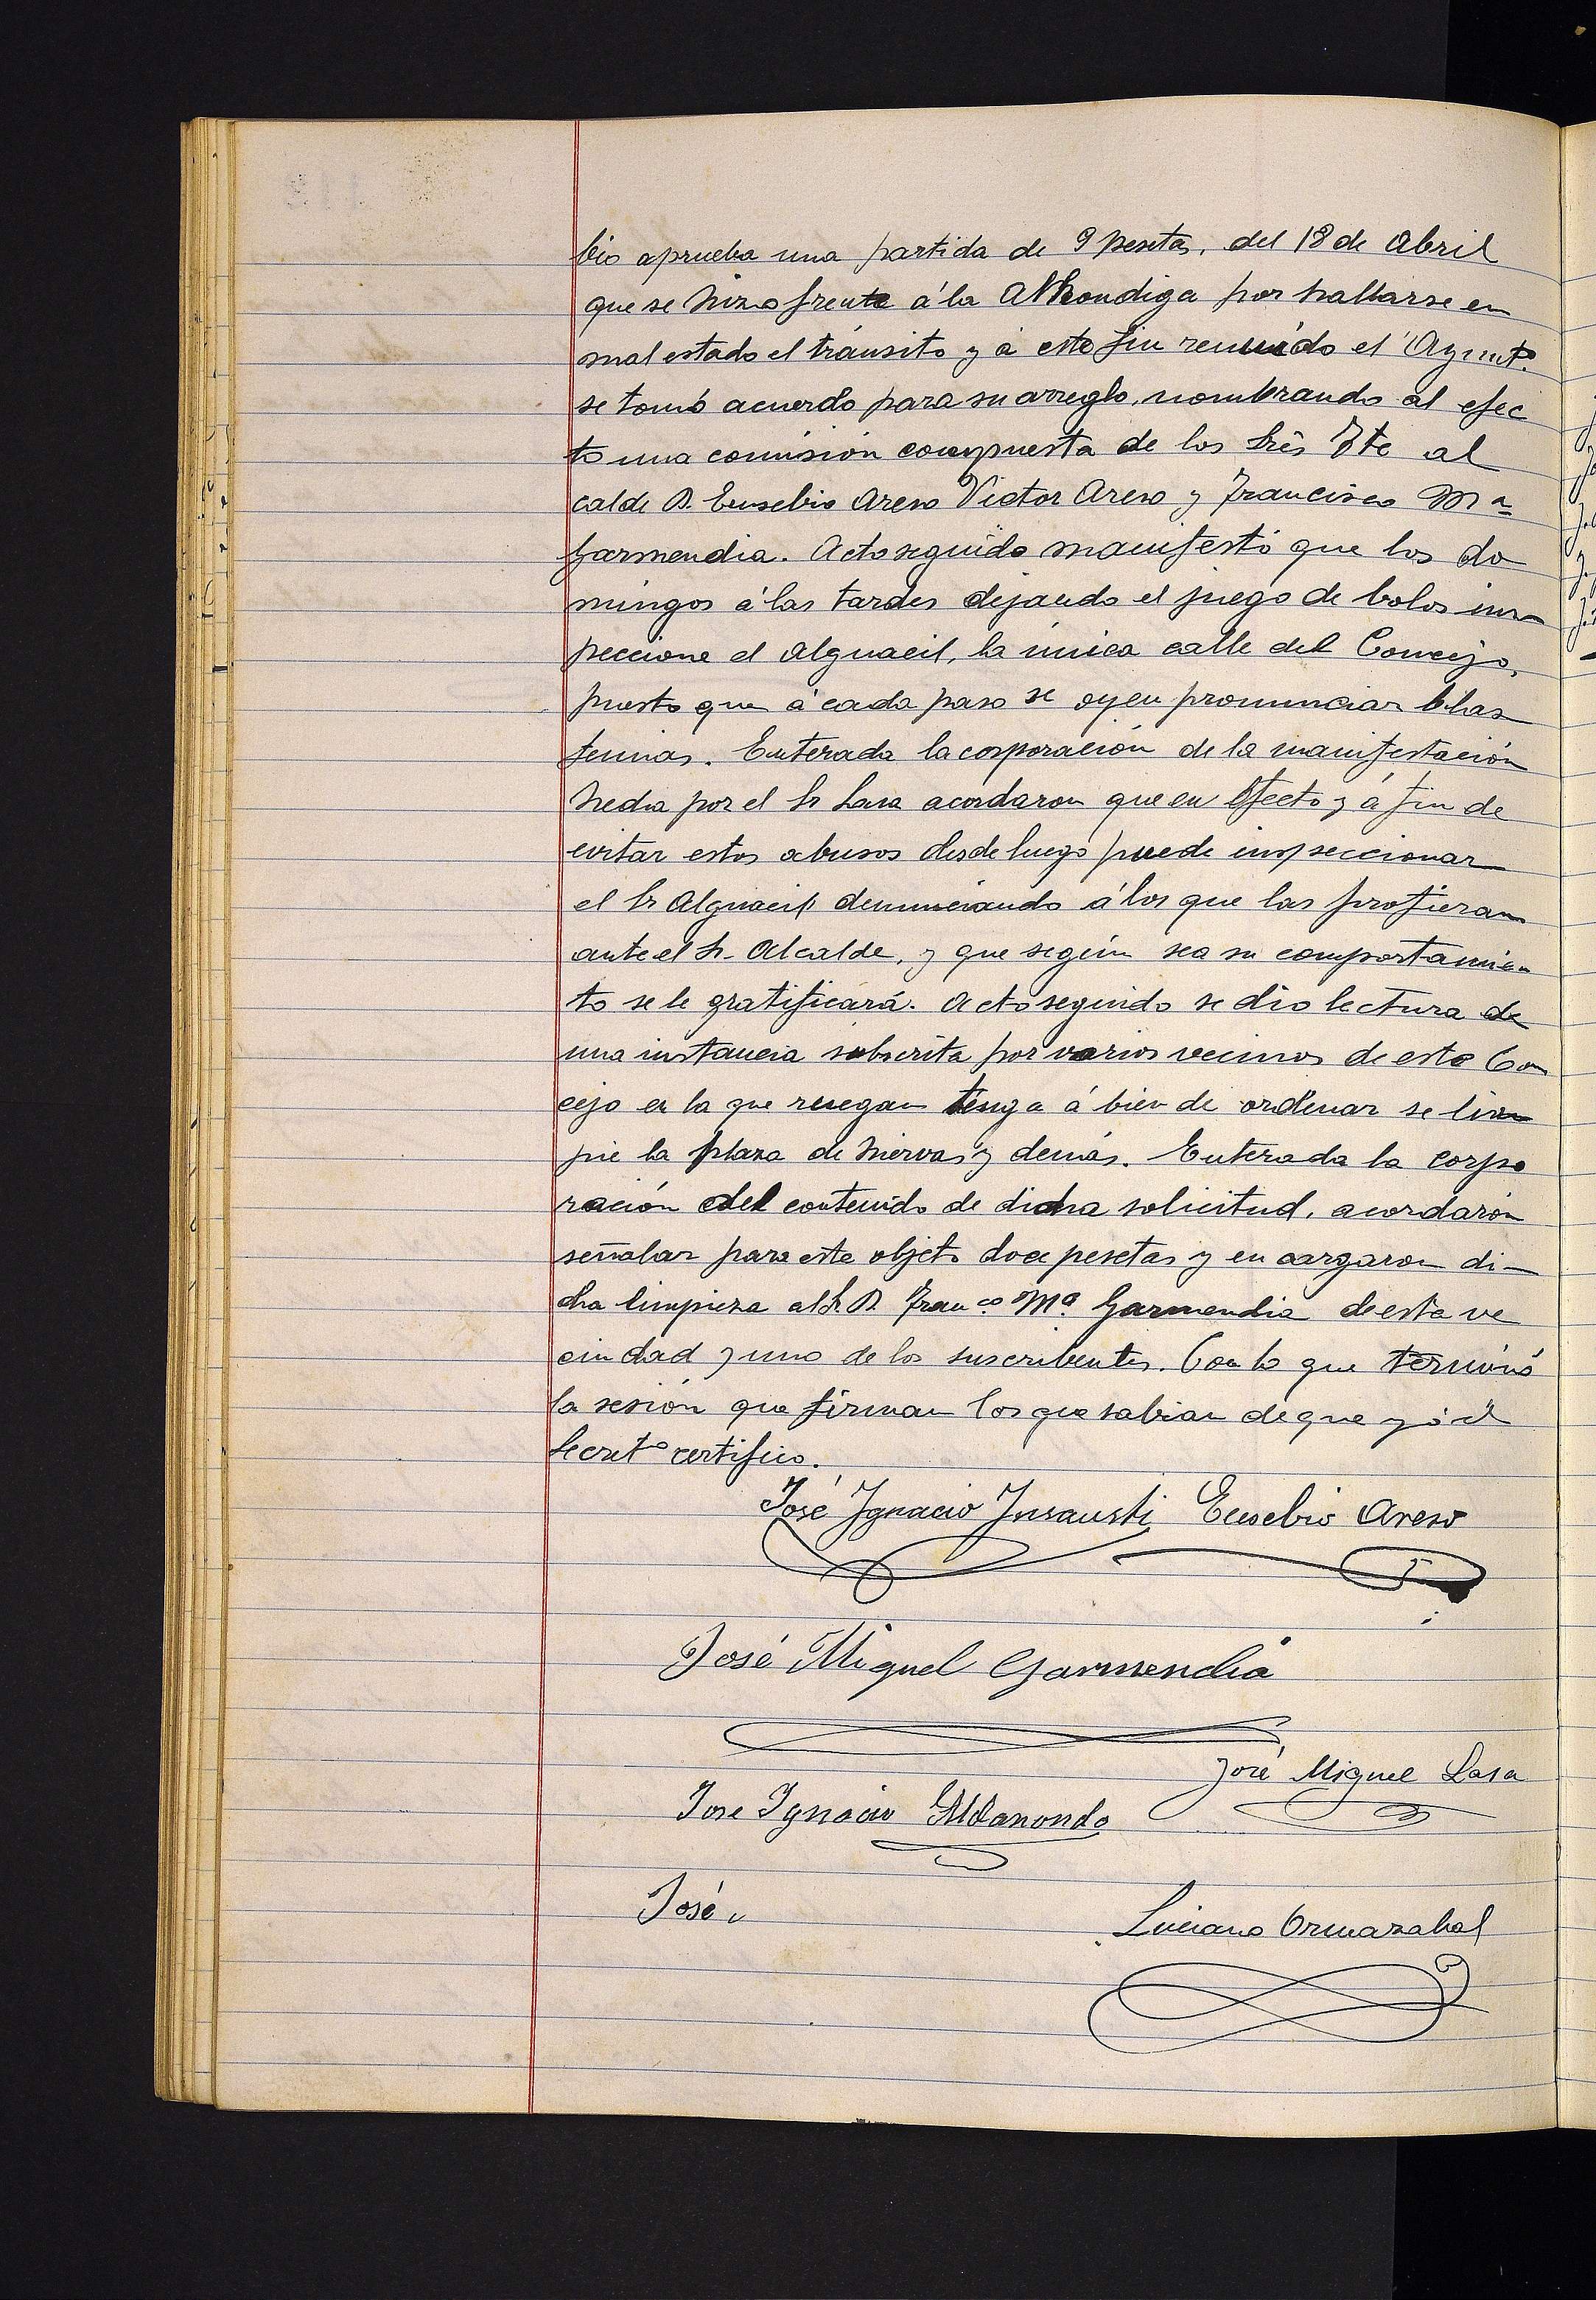 bio aprueba una partida de 9 pesetas, del 18 de Abril
que se hizo frente á la Alhondiga por hallarse en
mal estado el tránsito y á este fin reunido el Ayunt.º
se tomó acuerdo para su arreglo, nombrando al efec
to una comisión compuesta de los Srês Tte al
calde D. Eusebio Areso Victor Areso y Francisco Mª
Garmendia. Acto seguido manifestó que los do
mingos á las tardes dejando el juego de bolos ins
peccione el Alguacil, la única calle del Concejo,
puesto que á cada paso se oyen pronunciar blas
femias. Enterada la corporación de la manifestación
hecha por el Sr Lasa acordaron que en efecto y á fin de
evitar estos abusos desde luego puede inspeccionar
el Sr Alguacil denunciando á los que las profieran
ante el Sr. Alcalde, y que según sea su comportamien
to se le gratificará. Acto seguido se dio lectura de
una instancia subscrita por varios vecinos de este Con
cejo en la que ruegan tenga á bien de ordenar se lim
pie la plaza de hiervas y demás. Enterada la corpo
ración del contenido de dicha solicitud, acordarón
señalar para este objeto doce pesetas y en cargaron di-
cha limpieza al Sr. D. Franco. Mª Garmendia de esta ve
cindad y uno de los suscribentes. Con lo que terminó
la sesión que firman los que sabian de que yó el
Secretº certifico.
José Ygnacio Ynsausti Eusebio Areso
José Miguel Garmendia
José Miguel Lasa
Jose Ygnacio Aldanondo
José
Luciano Ormazabal